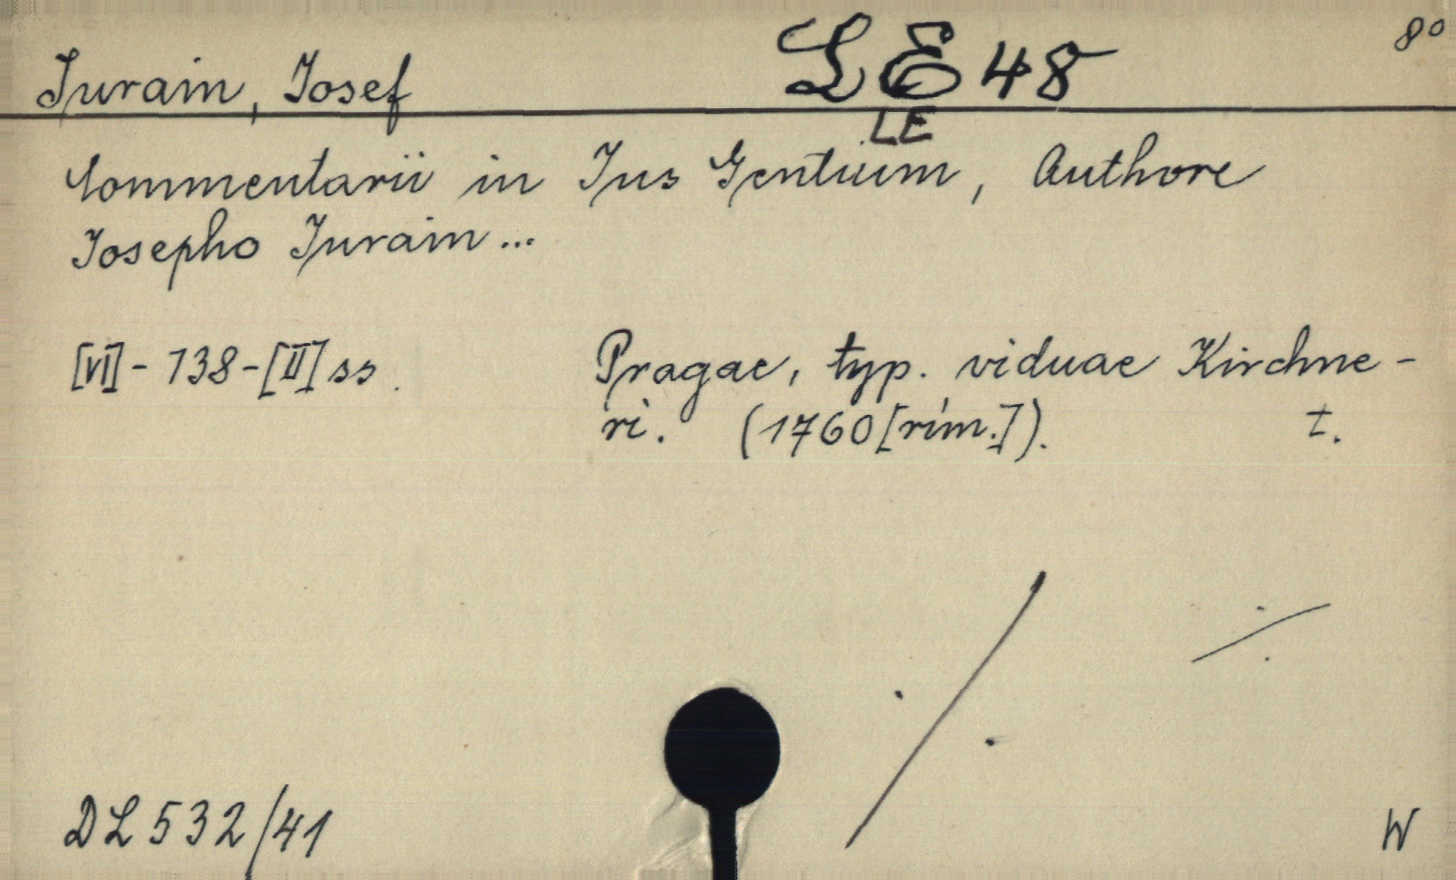 Jurain, Josef LE 48 8°
LE
Commentarii in Jus Gentium, Authore
Josepho Jurain...
[VI] - 138 - [II] ss. Pragae, typ. viduae Kirchne-
ri. (1760 [rím.]). t.
DL 532/41 W